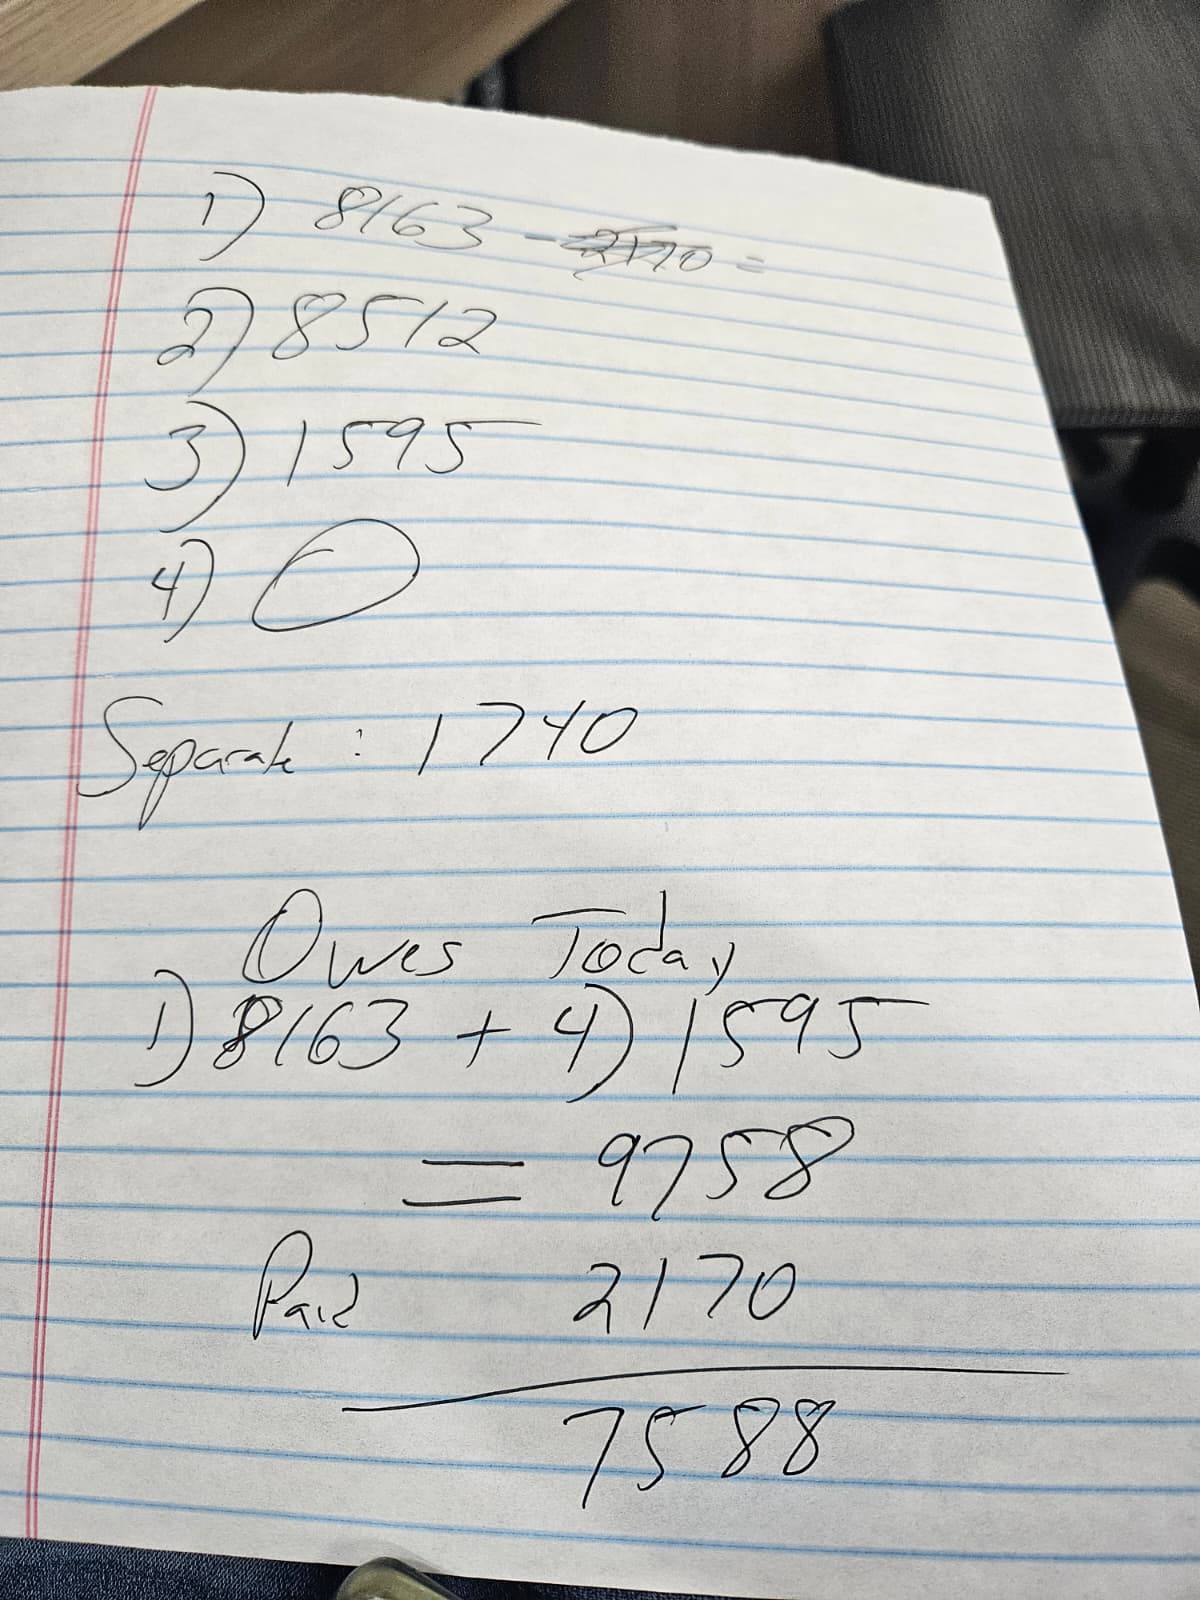 1) 8163 - 2170 =
2) 8512
3) 1595
4) 0
Separate : 1740
Owes Today
1) 8163 + 4) 1595
= 9758
Paid 2170
7588